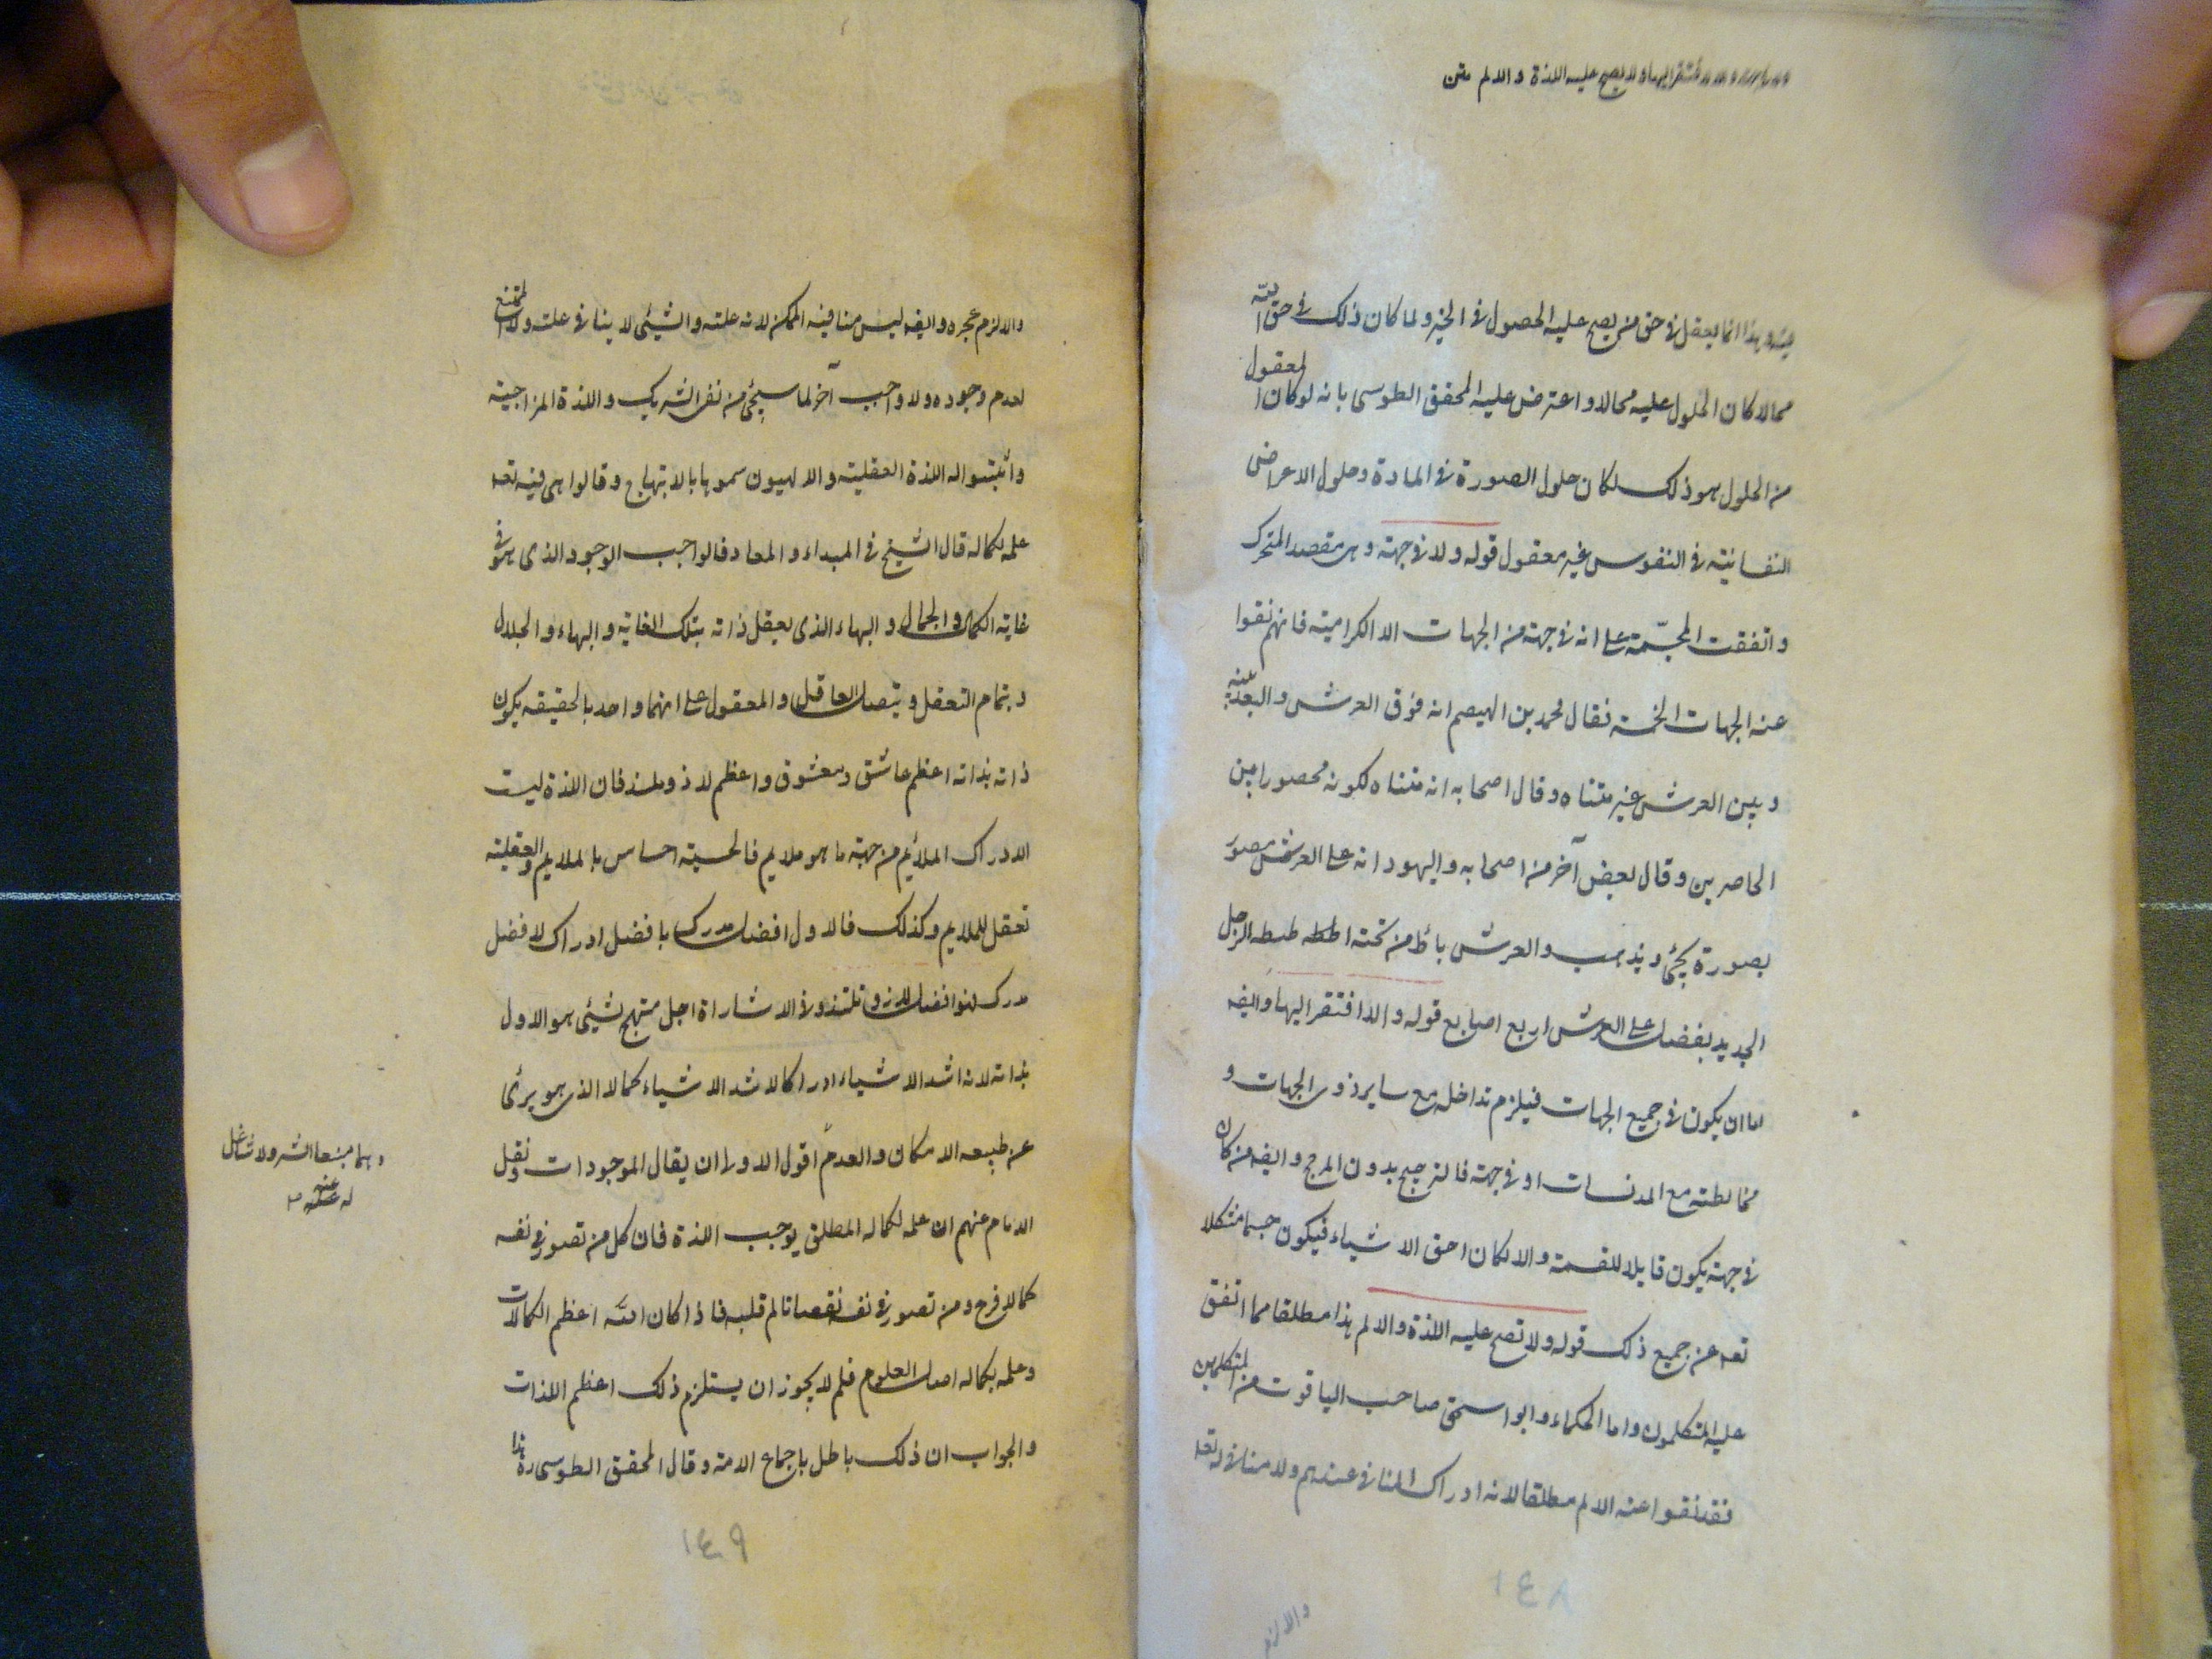 ولا يصح عليه اللذة والالم متن
وهذا انما يعقل فى حق من يصح عليه الحصول فى الحيز ولما كان ذلك فى حق الله
محالا كان الحلول عليه محالا واعترض عليه المحقق الطوسى بانه لو كان المعقول
من الحلول هو ذلك لكان حلول الصورة فى المادة وحلول الاعراض
النفسانية فى النفوس غير معقول قوله ولا فى جهة وهى مقصد المتحرك
واتفقت المجسّمة على انه فى جهة من الجهات الا الكرامية فانهم نفوا
عنه الجهات الخمسة فقال محمد بن الهيصم انه فوق العرش والبعد بينه
وبين العرش غير متناه وقال اصحابه انه متناه لكونه محصورا بين
الحاصرين وقال بعض آخر من اصحابه واليهود انه على العرش مصور
بصورة يجئ ويذهب والعرش يأط من تحته اطط طيطه الرحل
الجديد يفضل على العرش اربع اصابع قوله والا افتقر اليها وايضه
اما ان يكون فى جميع الجهات فيلزم تداخله مع ساير ذوى الجهات و
مخالطته مع المدنسات او فى جهة فالترجيح بدون المرجح وايضه من كان
فى جهة يكون قابلا للقسمة والالكان احق الاشياء فيكون جسما متشكلا
تعه عن جميع ذلك قوله ولا تصح عليه اللذة والالم هذا مطلقا مما اتفق
عليه المتكلمون واما الحكماء وابو اسحق صاحب الياقوت من المتكلمين
فقد نفوا عنه الالم مطلقا لانه ادراك المنافى عندهم ولا منافى له تعه
والالزم
١٤٨
والالزم عجزه وايضه ليس منافيه الممكن لانه علته والشيئى لا ينافى علته ولا الممتنع
لعدم وجوده ولا واجب آخر لما سيجئ من نفى الشريك واللذة المزاجية
وأثبتوا له اللذة العقلية والالهيون سموها بالابتهاج وقالوا هى فيه تعه
علمه بكماله قال الشيخ فى المبداء والمعاد فالواجب الوجود الذى هو فى
غاية الكمال والجمال والبهاء الذى يعقل ذاته بتلك الغاية والبهاء والجلال
وبتمام التعقل ويتصل العاقل والمعقول على انهما واحد بالحقيقه يكون
ذاته بذاته اعظم عاشق ومعشوق واعظم لاذ وملتذ فان اللذة ليست
الا ادراك الملائم من جهة ما هو ملايم فالحسية احساس بالملايم والعقلية
تعقل للملايم وكذلك فالاول افضل مدرك بافضل ادراك لافضل
مدرك فهو افضل لاذ وتلتذ وفى الاشاراة اجل مبتهج بشيئى هو الاول
بذاته لانه اشد الاشياء ادراكا لاشد الاشياء كمالا الذى هو برئى
عن طبيعه الامكان والعدم اقول الاولى ان يقال الموجودات ونقل
الامام عنهم ان علمه لكماله المطلق يوجب اللذة فان كل من تصور فى نفسه
كمالا فرح ومن تصور فى نفسه نقصانا تالم قلبه فاذا كان الله اعظم الكمالات
وعلمه بكماله اصل العلوم فلم لا يجوز ان يستلزم ذلك اعظم اللذات
والجواب ان ذلك باطل باجماع الامة وقال المحقق الطوسى ره هذا
وهما منبعا الشر ولا شاغل
له عنه
١٤٩